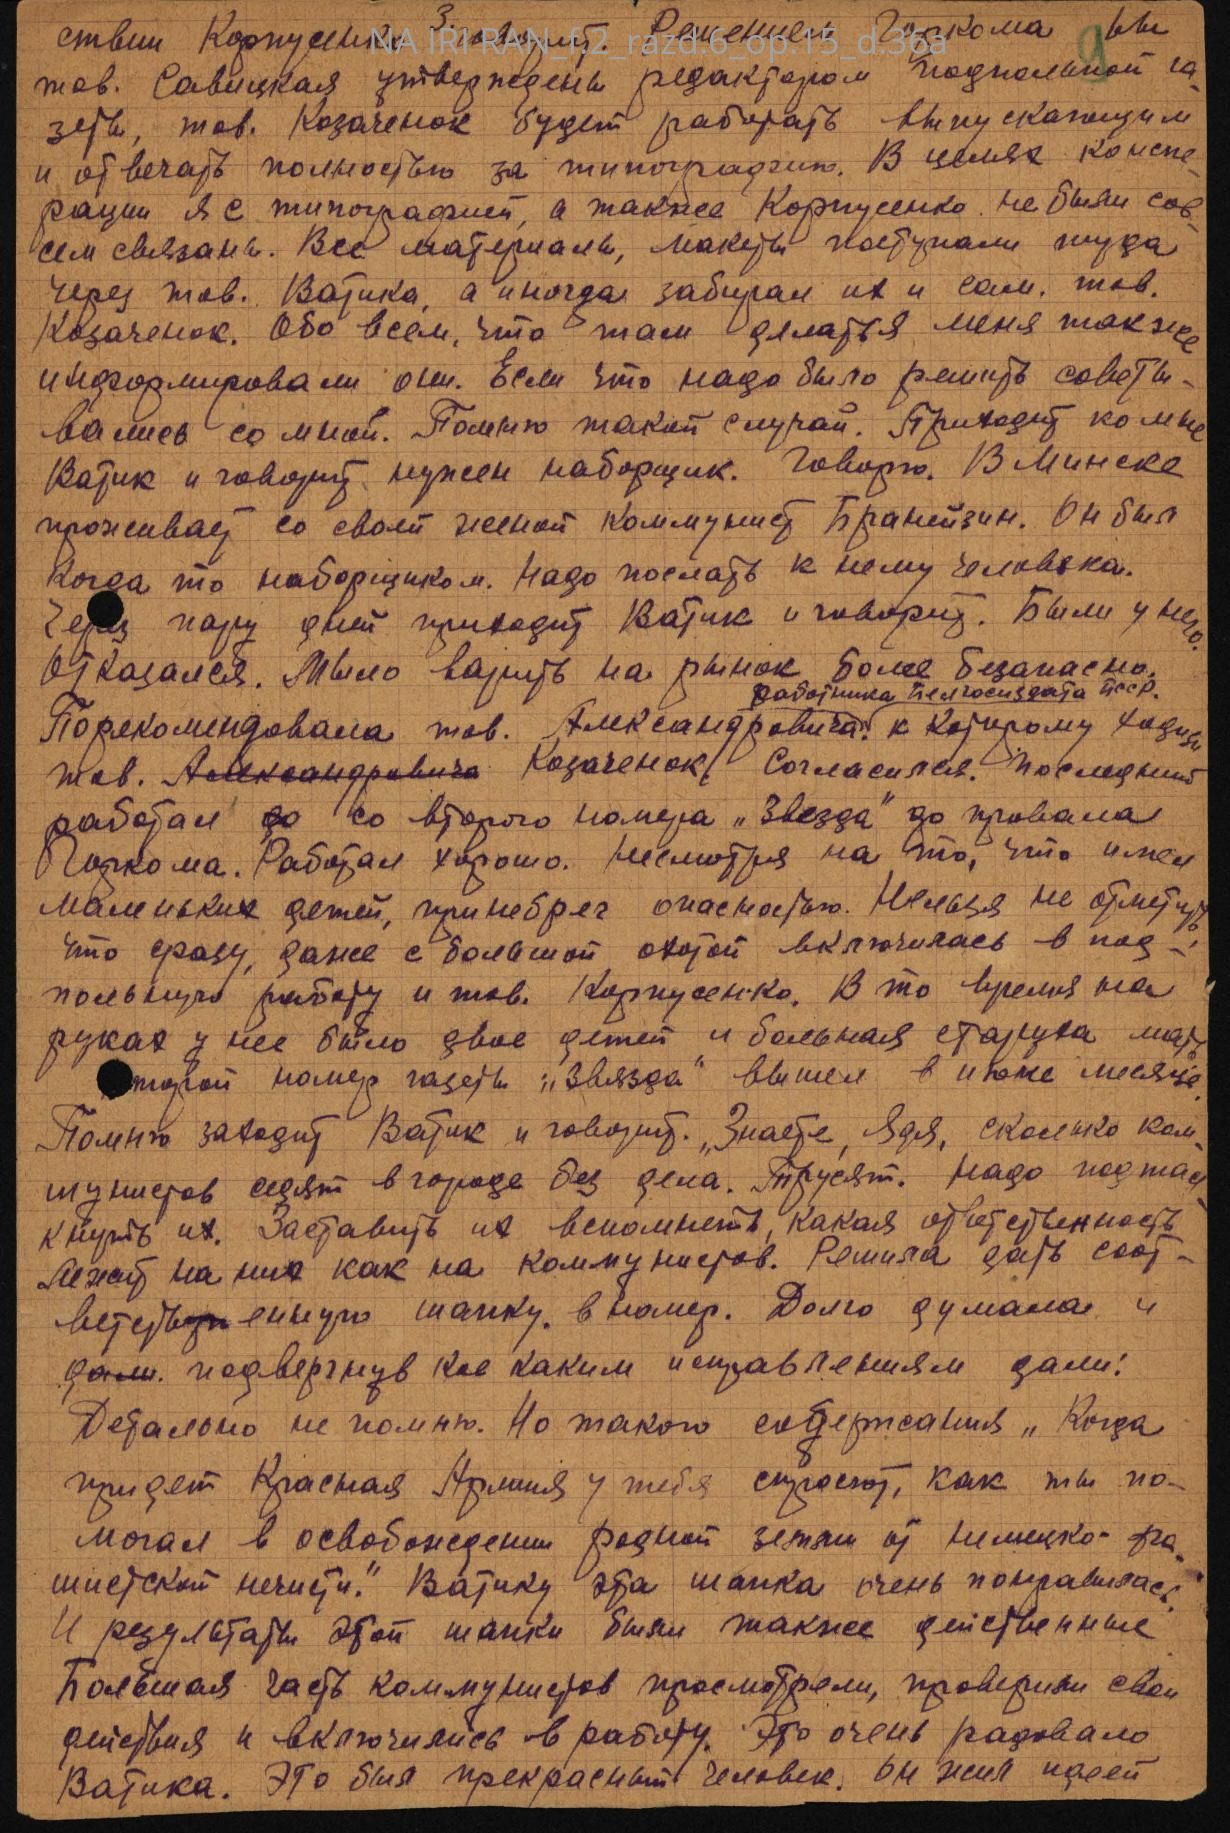 3.
9
NA IRI RAN_f.2_razd.6_op.15_d.36a
ствии Корпусенко Решением Горкома мы
тов. Савицкая утверждены редактором подпольной га-
зеты, тов. Козаченок будет работать выпускающим
и отвечать полностью за типографию. В целях конспе-
рации я с типографией, а также Корпусенко не были сов-
сем связаны. Все материалы, макеты поступали туда
через тов. Ватика, а иногда забирал их и сам. тов.
Козаченок. Обо всем, что там делаться меня также
информировали они. Если что надо было решить советы-
вались со мной. Помню такой случай. Приходит ко мне
Ватик и говорит нужен наборщик. Говорю. В Минске
проживает со своей женой коммунист Бранейзин. Он был
когда то наборщиком. Надо послать к нему человека.
Через пару дней приходит Ватик и говорит. Были у него.
Отказался. Мыло варить на рынок более безопасно.
работника Белгосиздата БССР.
Порекомендовала тов. Александровича к которому ходил
тов. Александровича Козаченок. Согласился. Последний
работал до со второго номера „Звезда" до провала
Горкома. Работал хорошо. Несмотря на то, что имел
маленьких детей, принебрег опасностью. Нельзя не отметить,
что сразу, даже с большой охотой включилась в под-
польную работу и тов. Корпусенко. В то время на
руках у нее было двое детей и больная старуха мать
торой номер газеты „Звязда" вышел в июне месяце.
Помню заходит Ватик и говорит. „Знаете, Ядя, сколько ком-
мунистов сидят в городе без дела. Трусят. Надо подтал-
кнуть их. Заставить их вспомнеть, какая ответственность
лежит на них как на коммунистов. Решила дать соот-
ветственную шапку в номер. Долго думала и
дали. подвергнув кое каким исправлениям дали:
Детально не помню. Но такого содержания „Когда
придет Красная Армия у тебя спросют, как ты по-
могал в освобождении родной земли от немецко-фа-
шистской нечисти." Ватику эта шапка очень понравилась.
И результаты этой шапки были также действенные
Большая часть коммунистов просмотрели, проверили свои
действия и включились в работу. Это очень радовало
Ватика. Это был прекрасный человек. Он жил идеей